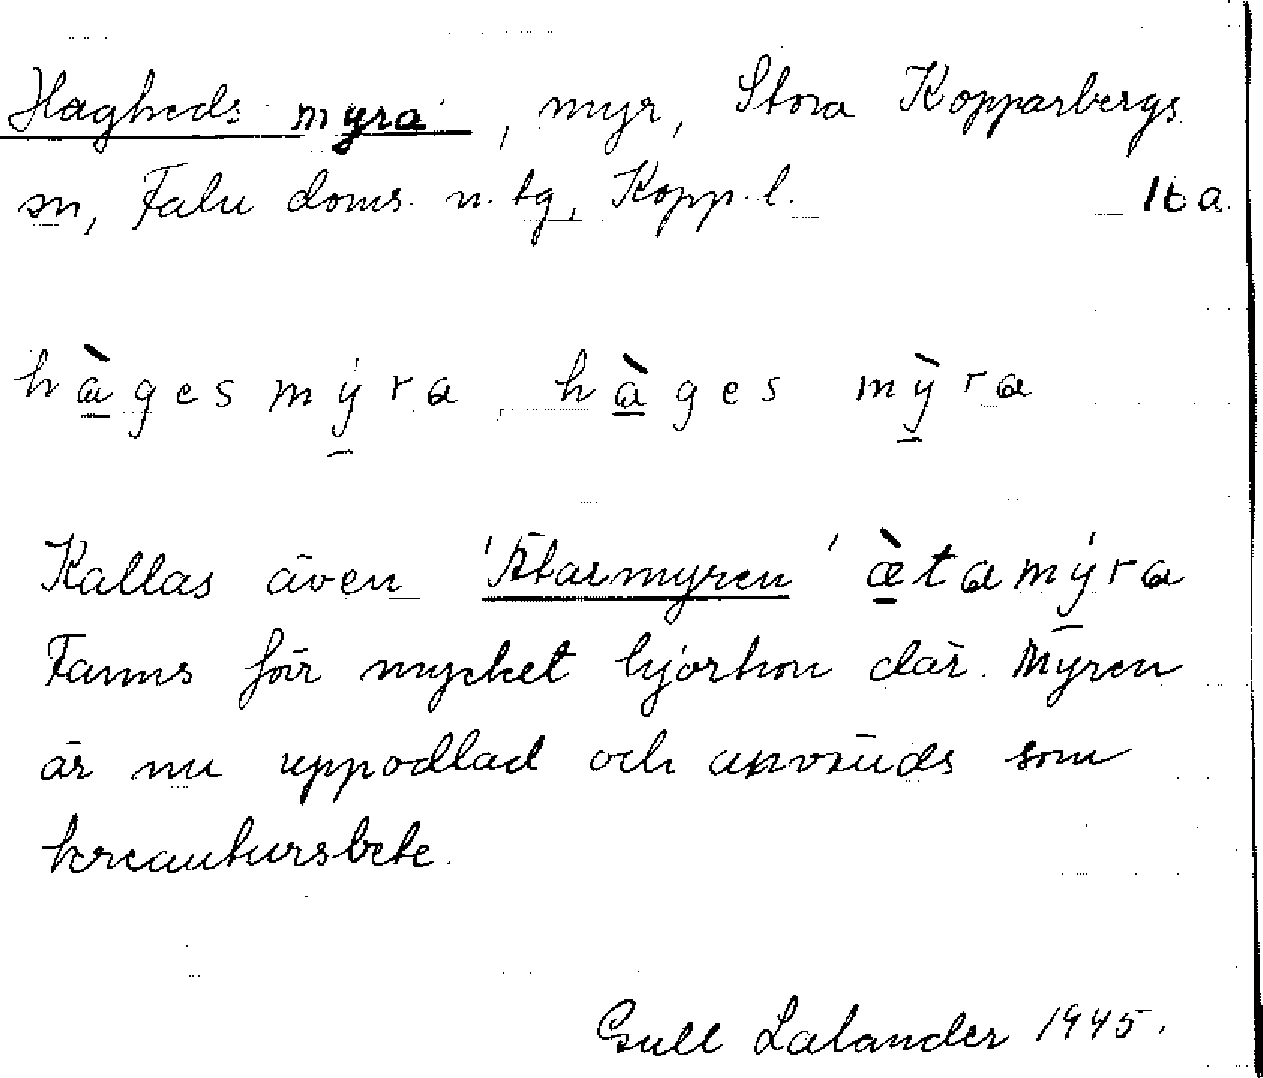 Hagheds myra, myr, Stora Kopparbergs
sn, Falu doms. n. tg, Kopp. l. 16 a.
hàgesmýra hàges mỳra
Kallas även 'Ätarmyren' ætamýra
Fanns förr mycket hjortron där. Myren
är nu uppodlad och används som
kreatursbete.
Gull Lalander 1945.